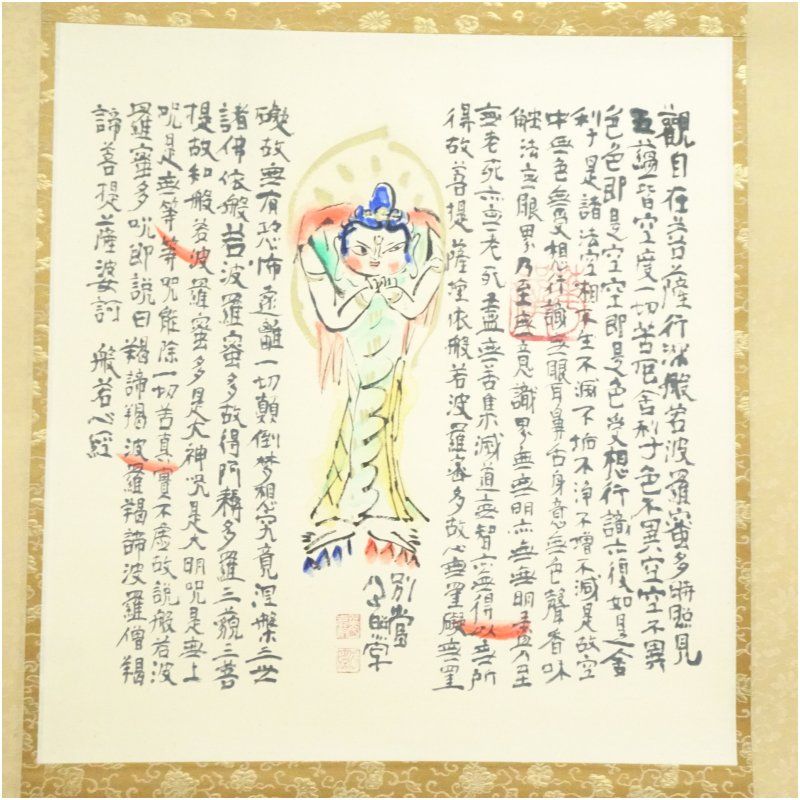 觀自在菩薩行深般若波羅蜜多時照見
五蘊皆空度一切苦厄舍利子色不異空空不異
色色即是空空即是色受想行識亦復如是舍
利子是諸法空相不生不滅不垢不浄不増不減是故空
中無色無受想行識無眼耳鼻舌身意無色聲香味
触法無眼界乃至無意識界無無明亦無無明盡乃至
無老死亦無老死盡無苦集滅道無智亦無得以無所
得故菩提薩埵依般若波羅蜜多故心無罣礙無罣
礙故無有恐怖遠離一切顛倒夢想究竟涅槃三世
諸佛依般若波羅蜜多故得阿耨多羅三藐三菩
提故知般若波羅蜜多是大神呪是大明呪是無上
呪是無等等呪能除一切苦真實不虚故説般若波
羅蜜多呪即説曰羯諦羯波羅羯諦波羅僧羯
諦菩提薩婆訶 般若心經
別當